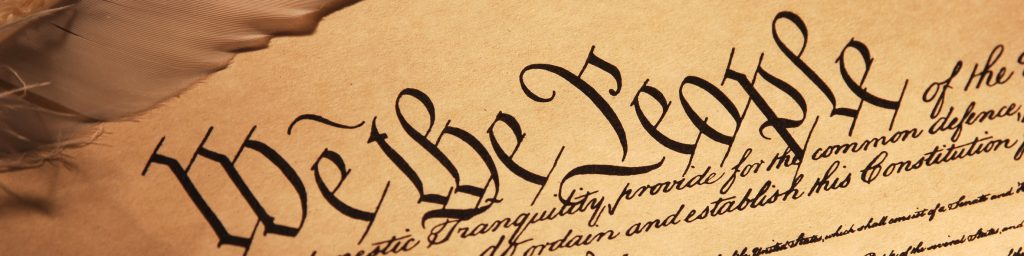 We the People of the
Tranquility, provide for the common defence,
do ordain and establish this Constitution
United States, which shall consist of a Senate and
of the several States, and